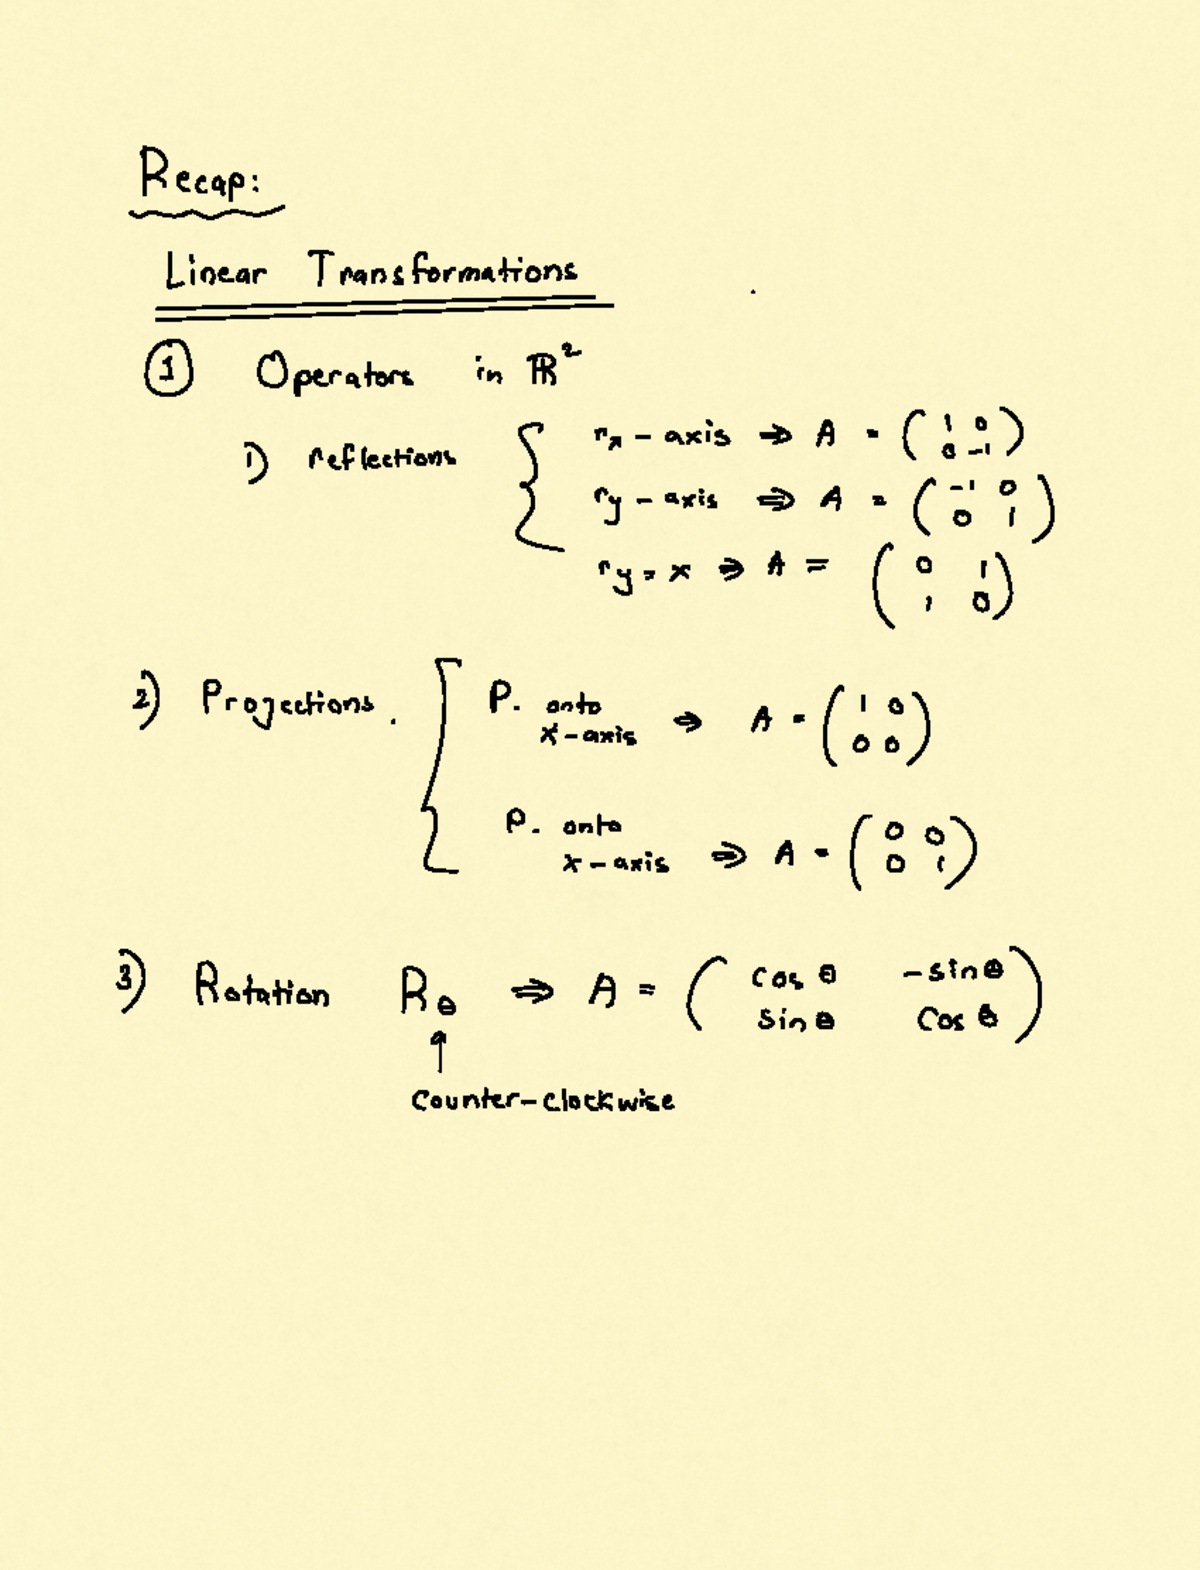 Recap:
Linear Transformations
① Operators in ℝ²
1) reflections
rₓ-axis ⇒ A = (1 0
0 -1)
r_y-axis ⇒ A = (-1 0
0 1)
r_y=x ⇒ A = (0 1
1 0)
2) Projections.
P. onto
x-axis ⇒ A = (1 0
0 0)
P. onto
x-axis ⇒ A = (0 0
0 1)
3) Rotation R_θ ⇒ A = (cos θ -sin θ
sin θ cos θ)
↑
Counter-clockwise